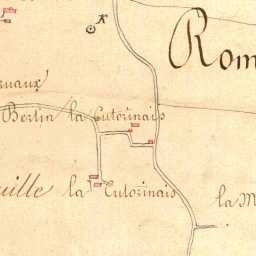 K
Rom
ruaux
Bertin la Cutorinais
uille la Cutorinais
la M